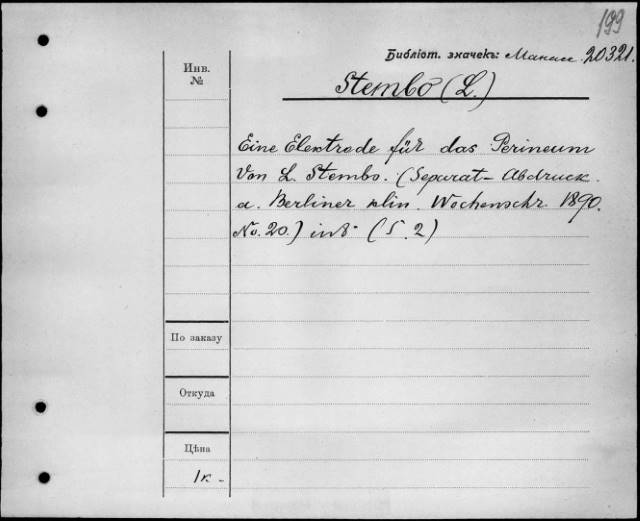 199
Библіот. значекъ: Манасс. 20321.
Stembo (L.)
Инв.
№
Eine Elektrode für das Perineum
Von L. Stembo. (Separat-Abdruck
a. Berliner klin. Wochenschr. 1890.
No. 20.) in 8° (S. 2)
По заказу
Откуда
Цѣна
1к -